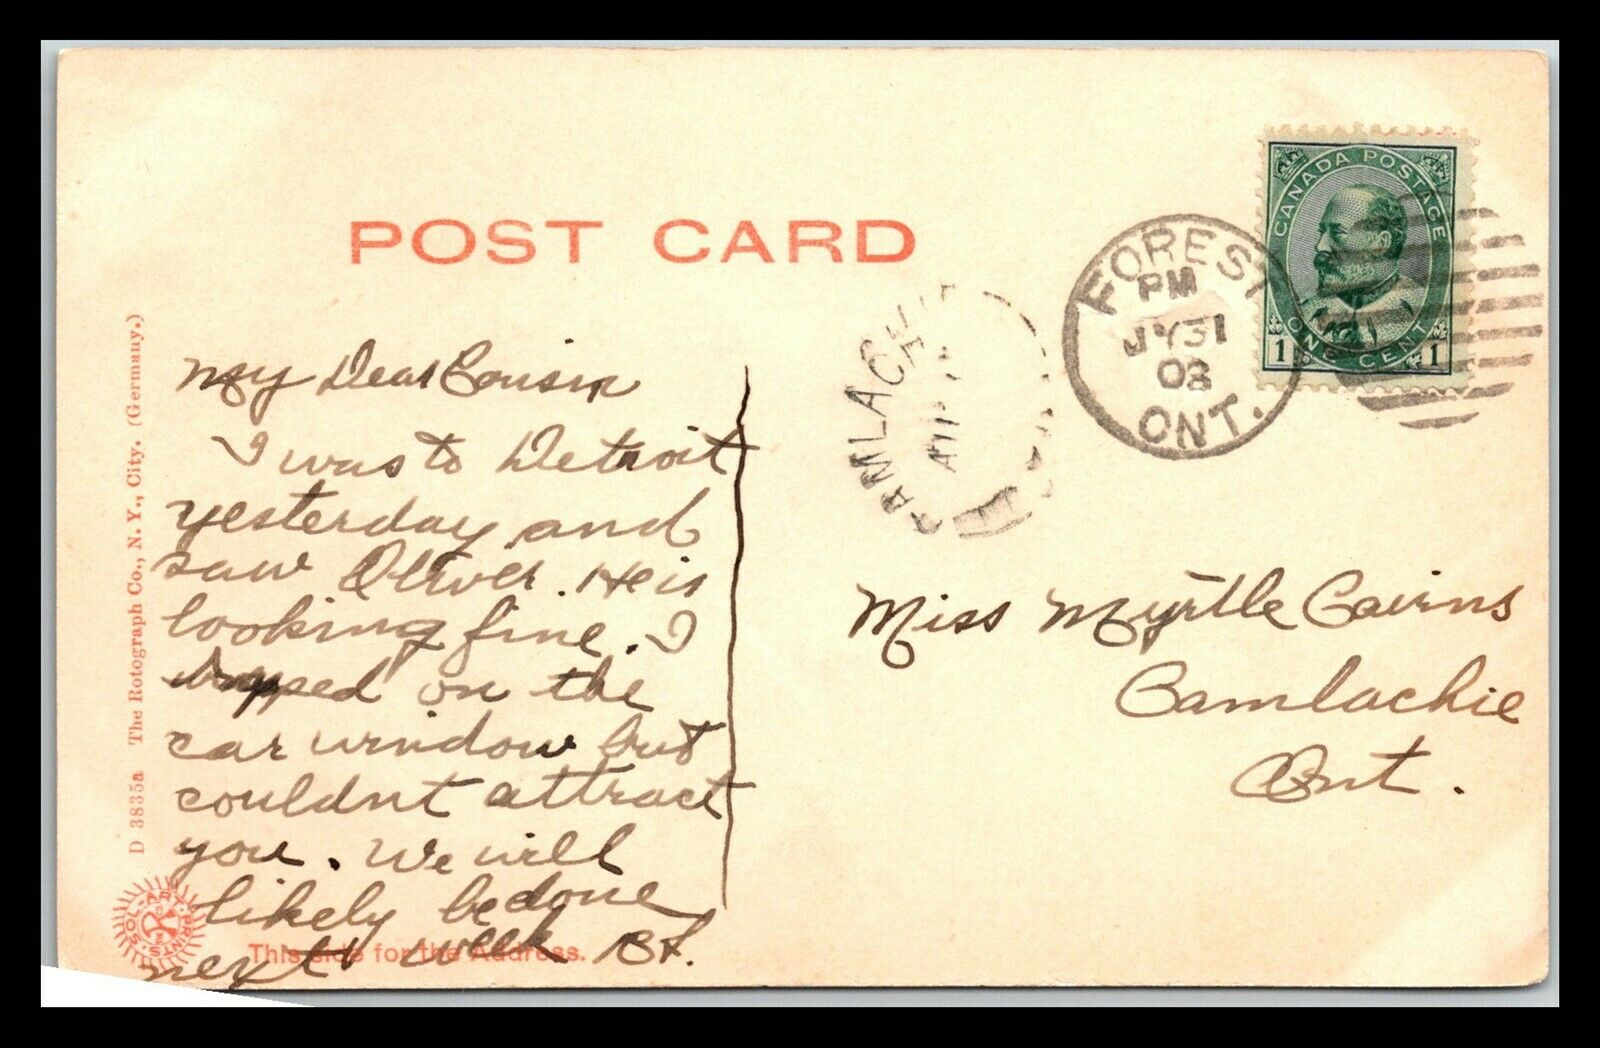 POST CARD
CANADA POSTAGE
ONE CENT
1 1
FOREST
PM
JY 31
08
ONT.
CAMLACH
My Dear Cousin
I was to Detroit
yesterday and
saw Oliver. He is
looking fine. I
rapped on the
car window but
couldnt attract
you. We will
likely be done
next week
Miss Myrtle Cairns
Camlachie
Ont.
D 3835a The Rotograph Co., N. Y., City. (Germany.)
SOL-ART PRINTS
This side for the Address.